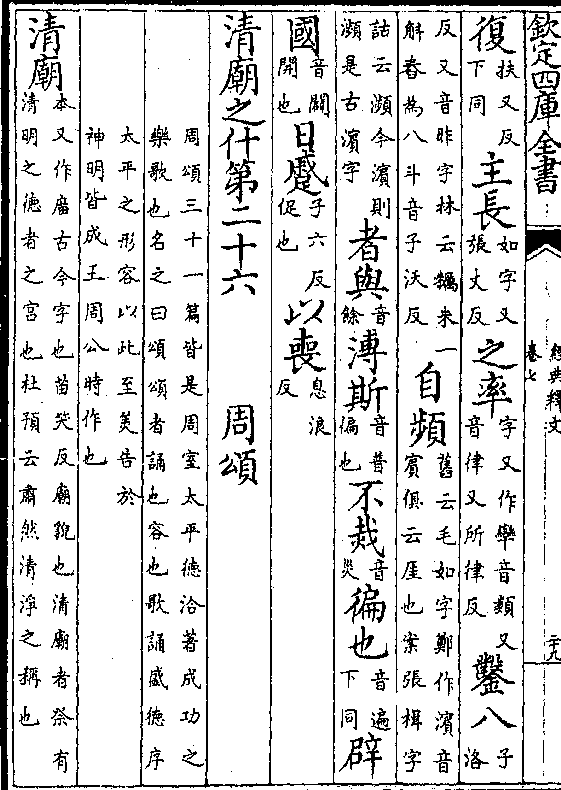 欽定四庫全書
經典釋文
卷七
二十九
復扶又反下同主長如字又張丈反之率字又作卛音類又音律又所律反鑿八子洛
反又音昨字林云糲米一斛舂為八斗音子沃反自頻舊云毛如字鄭作濵音賓俱云厓也案張楫字
詁云瀕今濵則瀕是古濵字者與音餘溥斯音普徧也不烖音災徧也音遍下同辟
國音闢開也日蹙子六反促也以喪息浪反
清廟之什第二十六 周頌
周頌三十一篇皆是周室太平德洽著成功之
樂歌也名之曰頌頌者誦也容也歌誦盛德序
太平之形容以此至美告於
神明皆成王周公時作也
清廟本又作庿古今字也苗笑反廟貌也清廟者祭有清明之德者之宮也杜預云肅然清淨之稱也